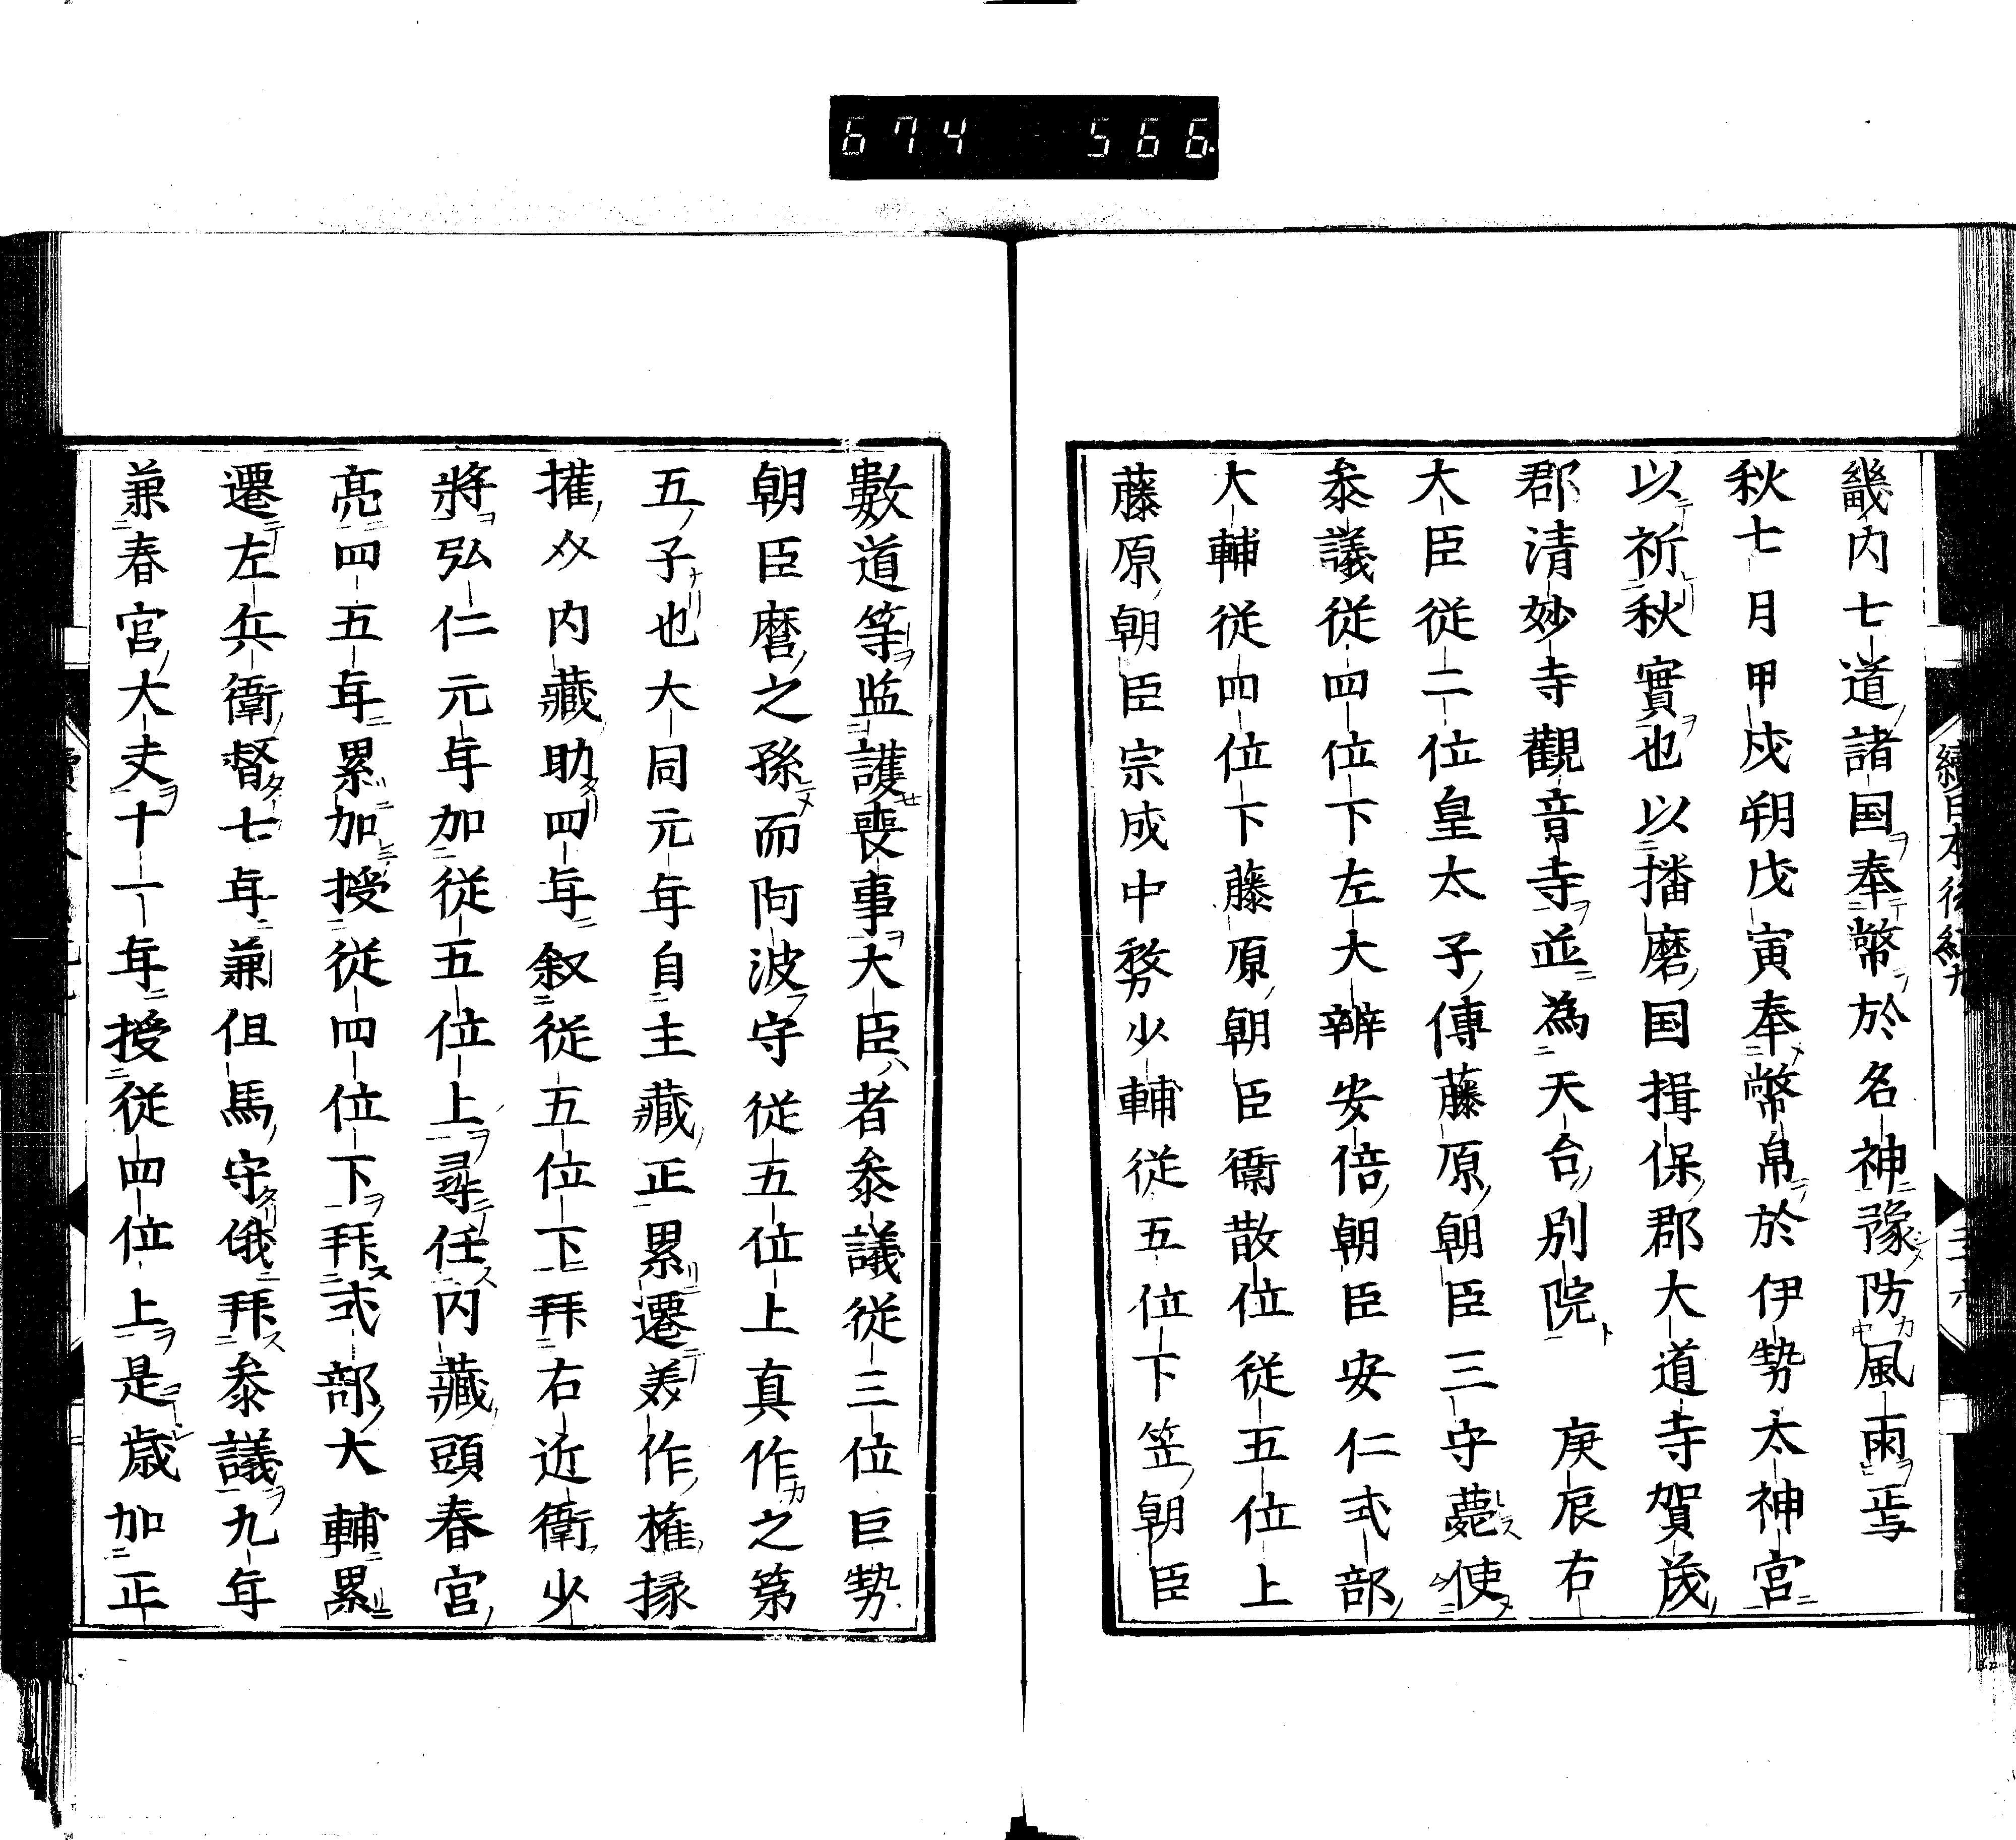 674 566
畿内七道諸国奉幣於名神豫防風雨焉
秋七月甲戌朔戊寅奉幣帛於伊勢太神宮
以祈秋實也以播磨国揖保郡大道寺賀茂
郡清妙寺觀音寺並為天台別院 庚辰右
大臣従二位皇太子傳藤原朝臣三守薨使
叅議従四位下左大辨安倍朝臣安仁式部
大輔従四位下藤原朝臣衞散位従五位上
藤原朝臣宗成中務少輔従五位下笠朝臣
數道等监護喪事大臣者叅議従三位巨勢
朝臣麿之孫而阿波守従五位上真作之第
五子也大同元年自主藏正累遷美作権掾
擢爲内藏助四年叙従五位下拜右近衛少
將弘仁元年加従五位上尋任内藏頭春宮
亮四五年累加授従四位下拜式部大輔累
遷左兵衛督七年兼但馬守俄拜叅議九年
兼春宮大夫十一年授従四位上是歳加正